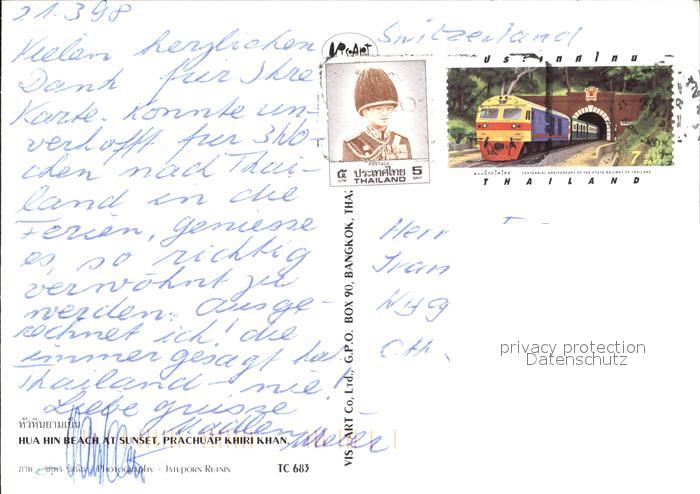 21.3.98
Switzerland
Vielen herzlichen
Dank für Ihre
Karte. Konnte un-
verhofft für 3 Wo-
chen nach Thai-
land in die
Ferien, geniesse
es, so richtig
verwöhnt zu
werden. Ausge-
rechnet ich! die
immer gesagt hat
Thailand - nie!
Liebe grüsse
Madlen Meier
ประเทศไทย
7
CENTENNIAL ANNIVERSARY OF THE STATE RAILWAY OF THAILAND
THAILAND
POSTAGE
๕ ประเทศไทย 5
บาท THAILAND BAHT
Herr
Ivan
CH.
privacy protection
Datenschutz
VISCOART Co., Ltd., G.P.O. BOX 90, BANGKOK, THA
หัวหินยามเย็น
HUA HIN BEACH AT SUNSET, PRACHUAP KHIRI KHAN.
ภาพ - PHOTOGRAPHY - JATUPORN RUJNIN TC 683